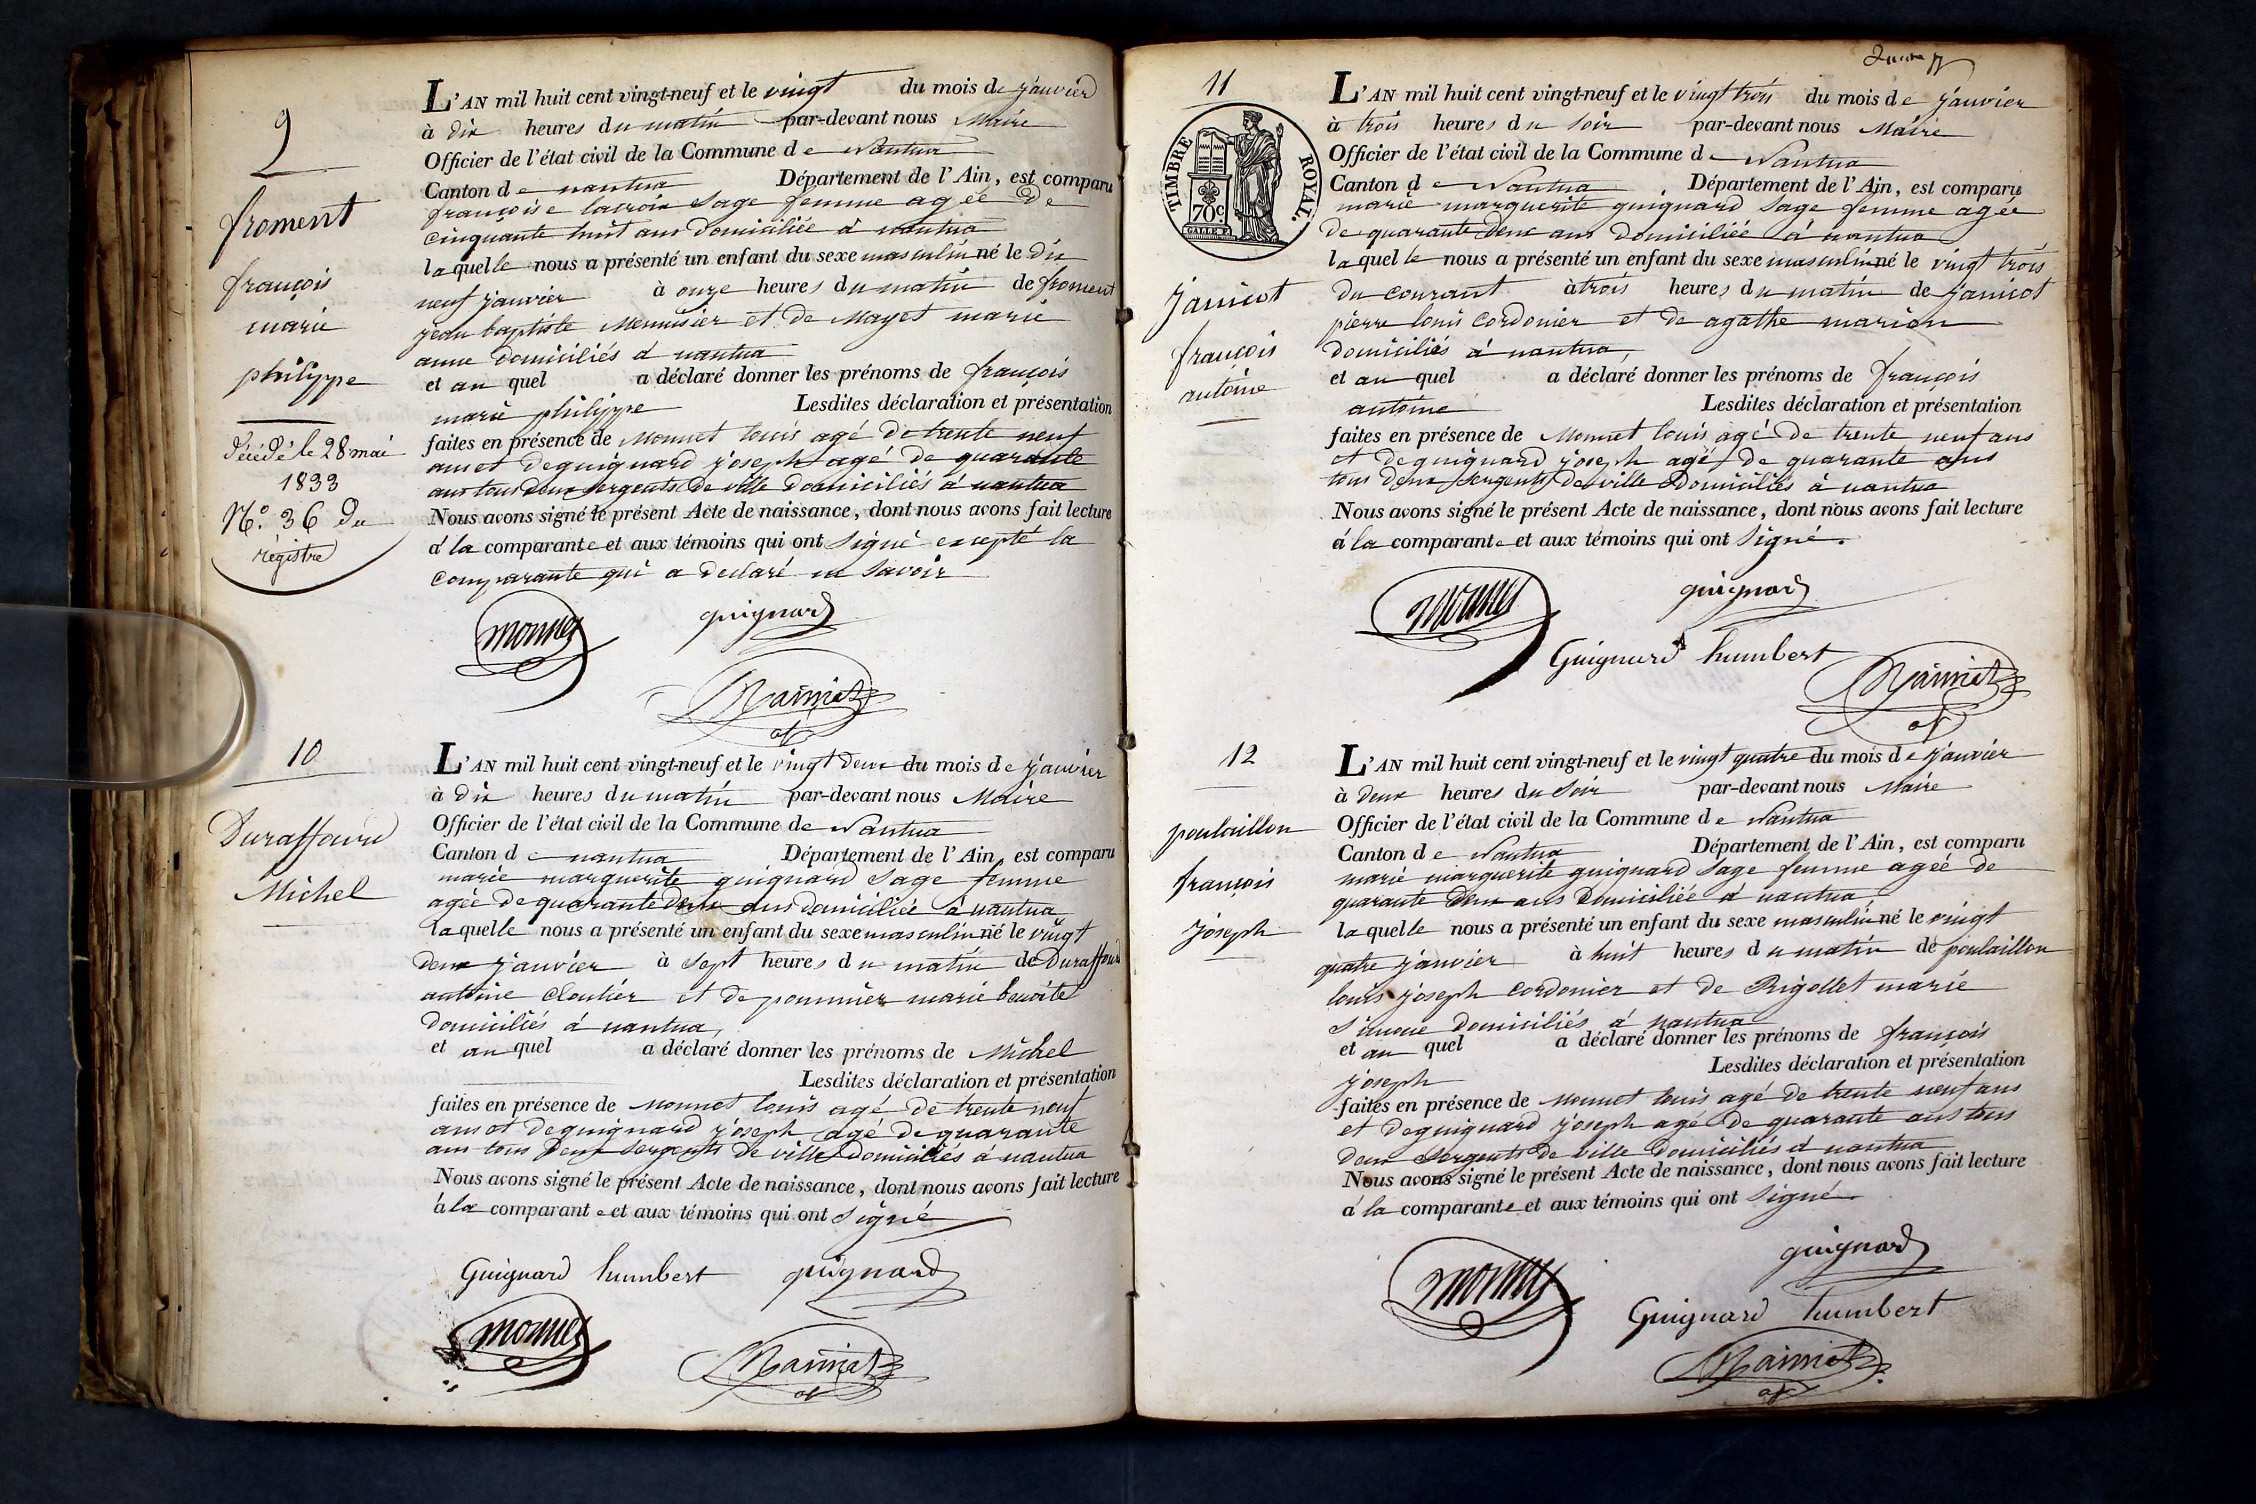 9
froment
françois
marie
philippe
décédé le 28 mai
1833
N.° 36 du
régistre
L'AN mil huit cent vingt-neuf et le vingt du mois de janvier
à dix heures du matin par-devant nous Maire
Officier de l'état civil de la Commune de Nantua
Canton de nantua Département de l'Ain, est comparu
françoise lacroix Sage femme agée de
cinquante huit ans domiciliée à nantua
laquelle nous a présenté un enfant du sexe masculin né le dix
neuf janvier à onze heures du matin de froment
jean baptiste Menuisier et de Mayet marie
anne domiciliés à nantua
et au quel a déclaré donner les prénoms de françois
marie philippe Lesdites déclaration et présentation
faites en présence de Monnet louis agé de trente neuf
ans et de guignard joseph agé de quarante
ans tous deux sergents de ville domiciliés à nantua
Nous avons signé le présent Acte de naissance, dont nous avons fait lecture
à la comparante et aux témoins qui ont signé excepté la
comparante qui a déclaré ne savoir
monnet guignard
10
Duraffourd
Michel
L'AN mil huit cent vingt-neuf et le vingt deux du mois de janvier
à dix heures du matin par-devant nous Maire
Officier de l'état civil de la Commune de Nantua
Canton de nantua Département de l'Ain, est comparu
marie marguerite guignard Sage femme
agée de quarante deux ans domiciliée à nantua
laquelle nous a présenté un enfant du sexe masculin né le vingt
deux janvier à sept heures du matin de Duraffourd
antoine Cloutier et de pommier marie benoite
domiciliés à nantua
et au quel a déclaré donner les prénoms de Michel
Lesdites déclaration et présentation
faites en présence de monnet louis agé de trente neuf
ans et de guignard joseph agé de quarante
ans tous deux sergents de ville domiciliés à nantua
Nous avons signé le présent Acte de naissance, dont nous avons fait lecture
à la comparante et aux témoins qui ont signé
Guignard humbert guignard
monnet
11
TIMBRE ROYAL.
70c.
janicot
françois
antoine
L'AN mil huit cent vingt-neuf et le vingt trois du mois de janvier
à trois heures du soir par-devant nous Maire
Officier de l'état civil de la Commune de Nantua
Canton de Nantua Département de l'Ain, est comparu
marie marguerite guignard Sage femme agée
de quarante deux ans domiciliée à nantua
laquelle nous a présenté un enfant du sexe masculin né le vingt trois
du courant à trois heures du matin de janicot
pierre louis Cordonier et de agathe marion
domiciliés à nantua
et au quel a déclaré donner les prénoms de françois
antoine Lesdites déclaration et présentation
faites en présence de Monnet louis agé de trente neuf ans
et de guignard joseph agé de quarante ans
tous deux sergents de ville domiciliés à nantua
Nous avons signé le présent Acte de naissance, dont nous avons fait lecture
à la comparante et aux témoins qui ont signé.
monnet guignard
Guignard humbert
12
poulaillon
françois
joseph
L'AN mil huit cent vingt-neuf et le vingt quatre du mois de janvier
à deux heures du soir par-devant nous Maire
Officier de l'état civil de la Commune de Nantua
Canton de Nantua Département de l'Ain, est comparu
marie marguerite guignard Sage femme agée de
quarante deux ans domiciliée à nantua
laquelle nous a présenté un enfant du sexe masculin né le vingt
quatre janvier à huit heures du matin de poulaillon
louis joseph Cordonier et de Rigollet marie
domiciliés à nantua
et au quel a déclaré donner les prénoms de françois
joseph Lesdites déclaration et présentation
faites en présence de Monnet louis agé de trente neuf ans
et de guignard joseph agé de quarante ans tous
deux sergents de ville domiciliés à nantua
Nous avons signé le présent Acte de naissance, dont nous avons fait lecture
à la comparante et aux témoins qui ont signé.
monnet guignard
Guignard humbert